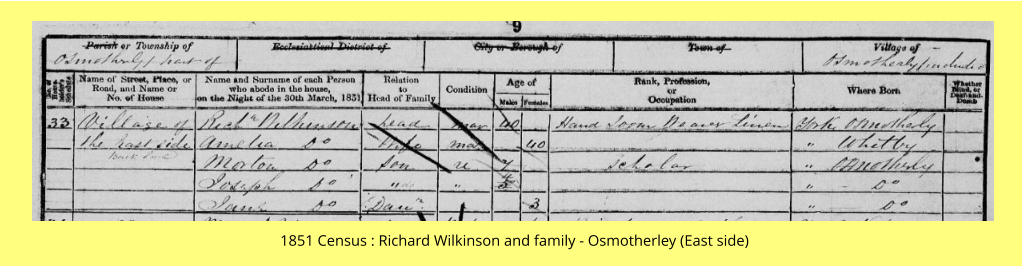 9
Parish or Township of Ecclesiastical District of City or Borough of Town of Village of
Osmotherly part of Osmotherly included
Name of Street, Place, or Road, and Name or No. of House
Name and Surname of each Person who abode in the house, on the Night of the 30th March, 1851
Relation to Head of Family
Condition
Age of
Males Females
Rank, Profession, or Occupation
Where Born
Whether Blind, or Deaf-and-Dumb
33 Village of Richd Wilkinson Head mar 40 Hand Loom Weaver Linen York Osmotherly
the East side Amelia Do Wife mar 40 " Whitby
Back Lane Morton Do Son u 7 Scholar " Osmotherly
Joseph Do " do " 5 " - Do
Jane Do Daur 3 " Do
1851 Census : Richard Wilkinson and family - Osmotherley (East side)